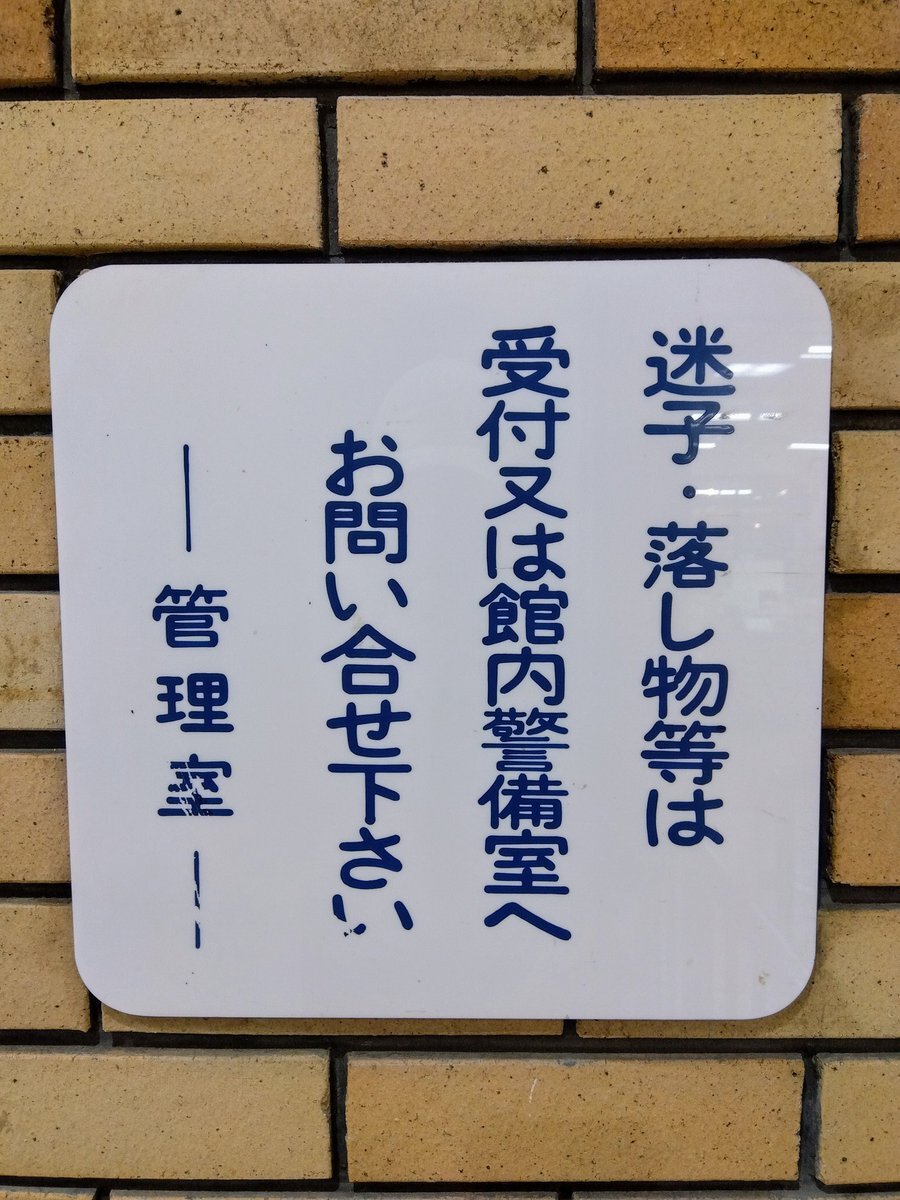 迷子・落し物等は
受付又は館内警備室へ
お問い合せ下さい
―管理室―